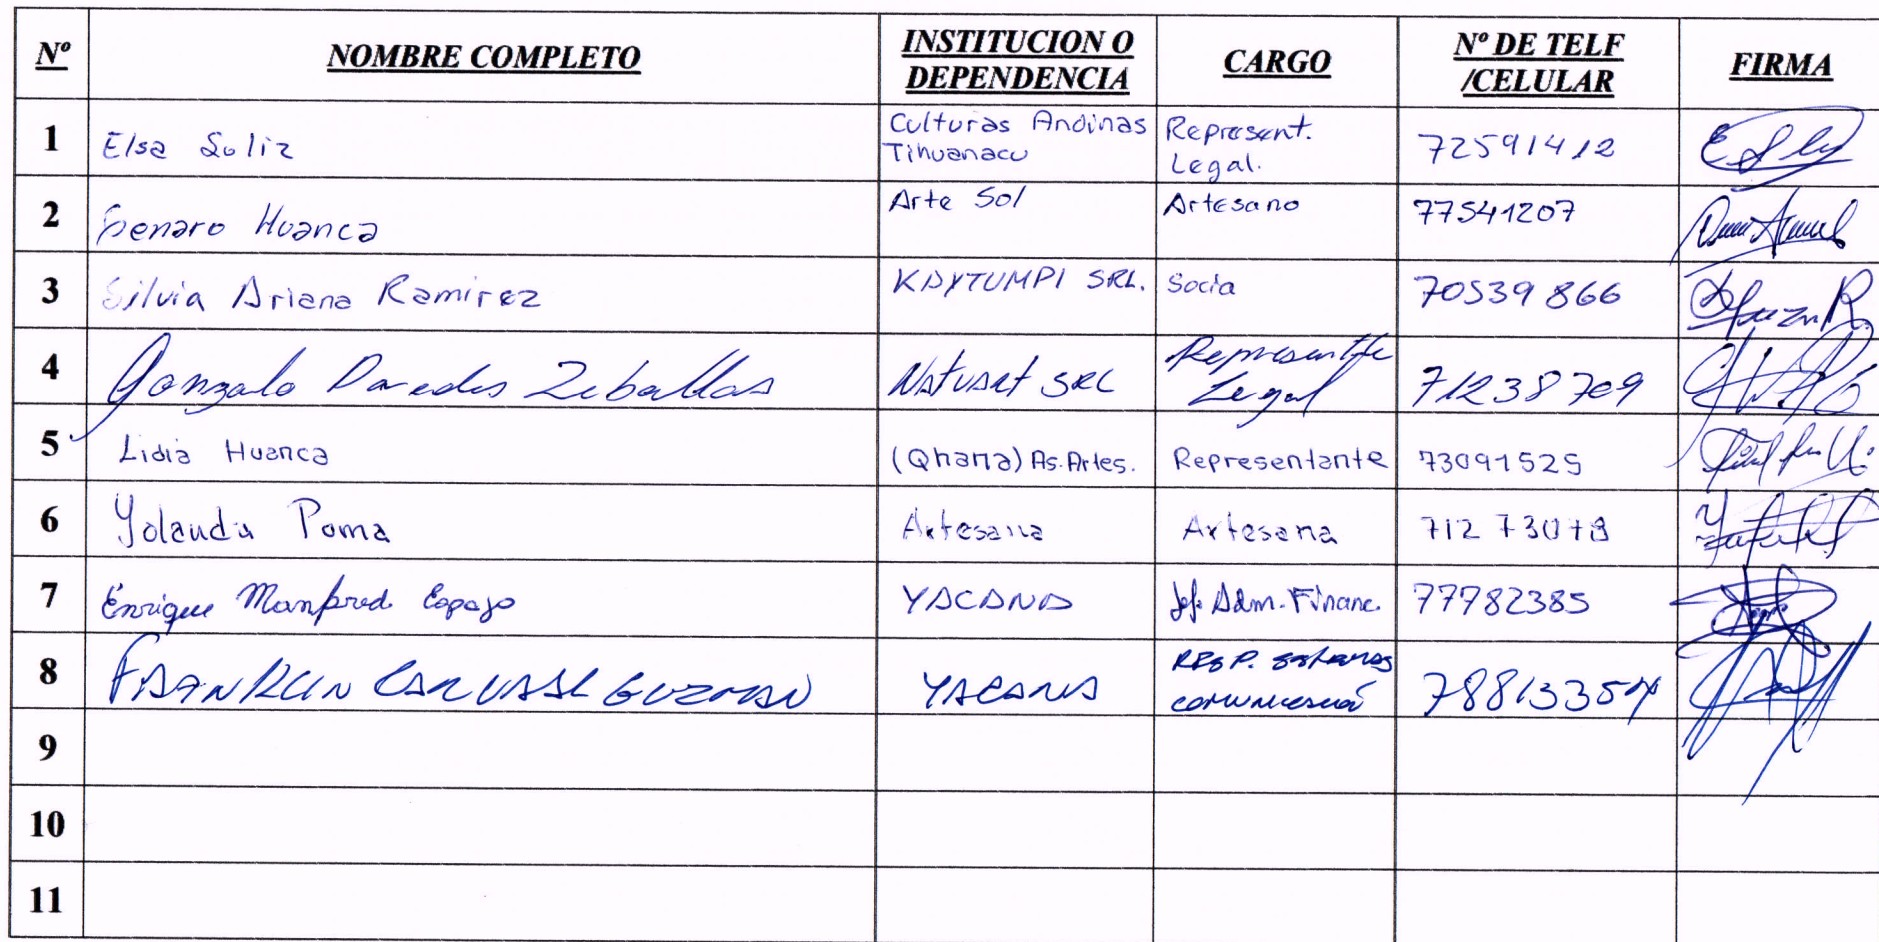 Nº NOMBRE COMPLETO INSTITUCION O DEPENDENCIA CARGO Nº DE TELF /CELULAR FIRMA
1 Elsa Soliz Culturas Andinas Tihuanacu Represent. Legal. 72591412
2 Genaro Huanca Arte Sol Artesano 77541207
3 Silvia Ariana Ramirez KAYTUMPI SRL. Socia 70539866
4 Gonzalo Paredes Zeballos Natusat SRL Legal 71238709
5 Lidia Huanca (Qhana) As. Artes. Representante 73091525
6 Yolanda Poma Artesana Artesana
7 Enrique Manfred Espejo YACANA Jef. Adm. Financ. 77782385
8 FRANKLIN CARVAJAL GUZMAN YACANA
9
10
11